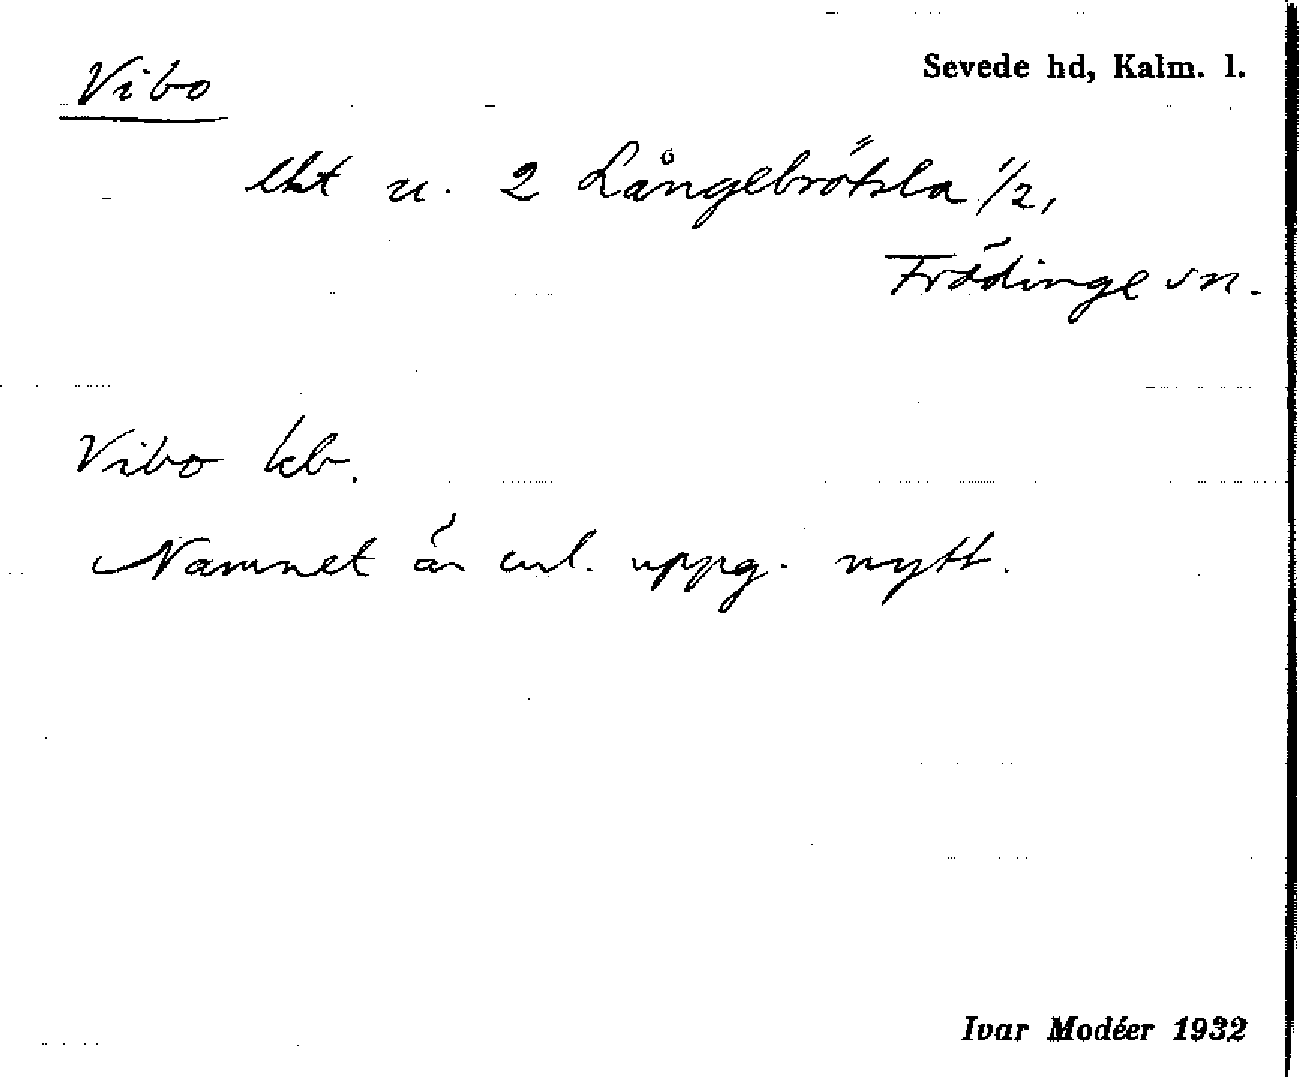 Vibo
Sevede hd, Kalm. l.
lht u. 2 Långebrötsla 1/2,
Frödinge sn.
Vibo kb.
Namnet är enl. uppg. nytt.
Ivar Modéer 1932